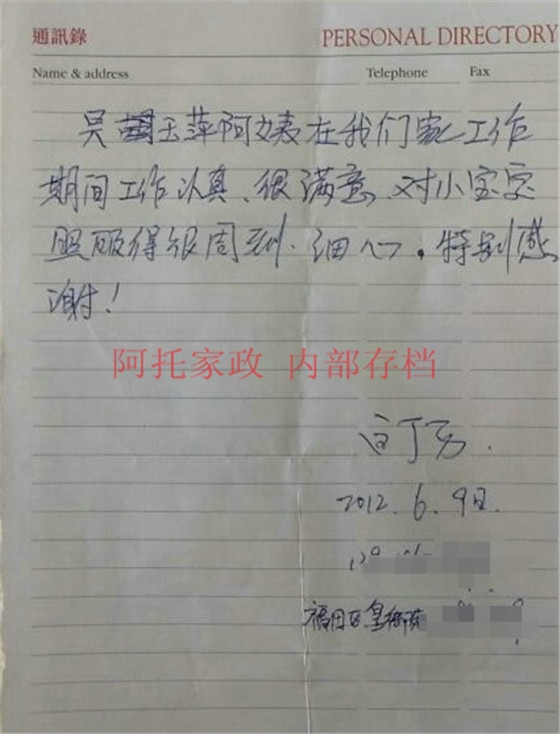 通訊錄 PERSONAL DIRECTORY
Name & address Telephone Fax
吴玉萍阿姨在我们家工作
期间工作认真、很满意、对小宝宝
照顾得很周到、细心,特别感
谢!
阿托家政 内部存档
2012.6.9日.
福田区皇